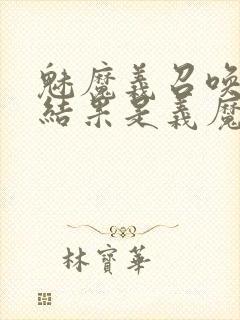 魅魔義召喚
結果是義魔
林寶華